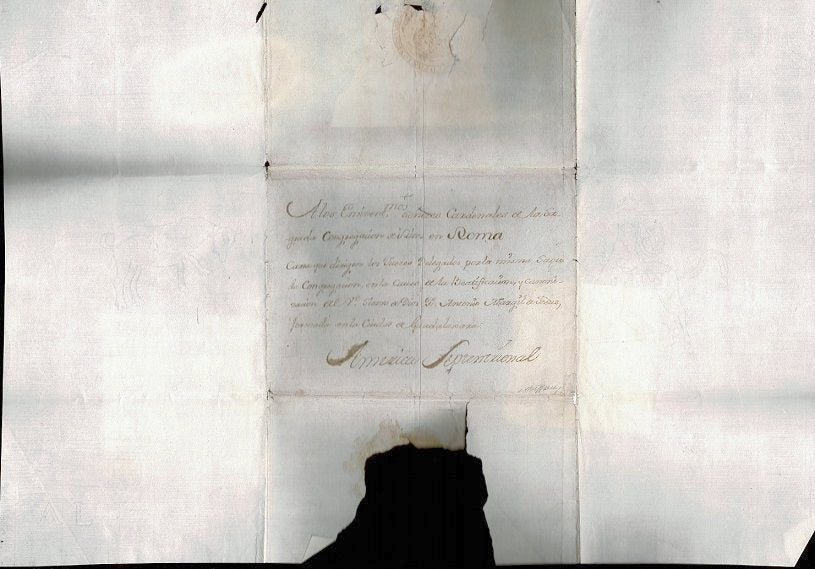 A los Eminent.mos Señores Cardenales de la Sa-
grada Congregacion de Ritus en Roma
Carta que dirigen los Jueces Delegados por la misma Sagra-
da Congregacion, en la Causa de la Beatificacion, y canoni-
zacion del V.e Siervo de Dios Fr. Antonio Margil de Jesus,
formada en la Ciudad de Guadalaxara.
America Septentrional
A L